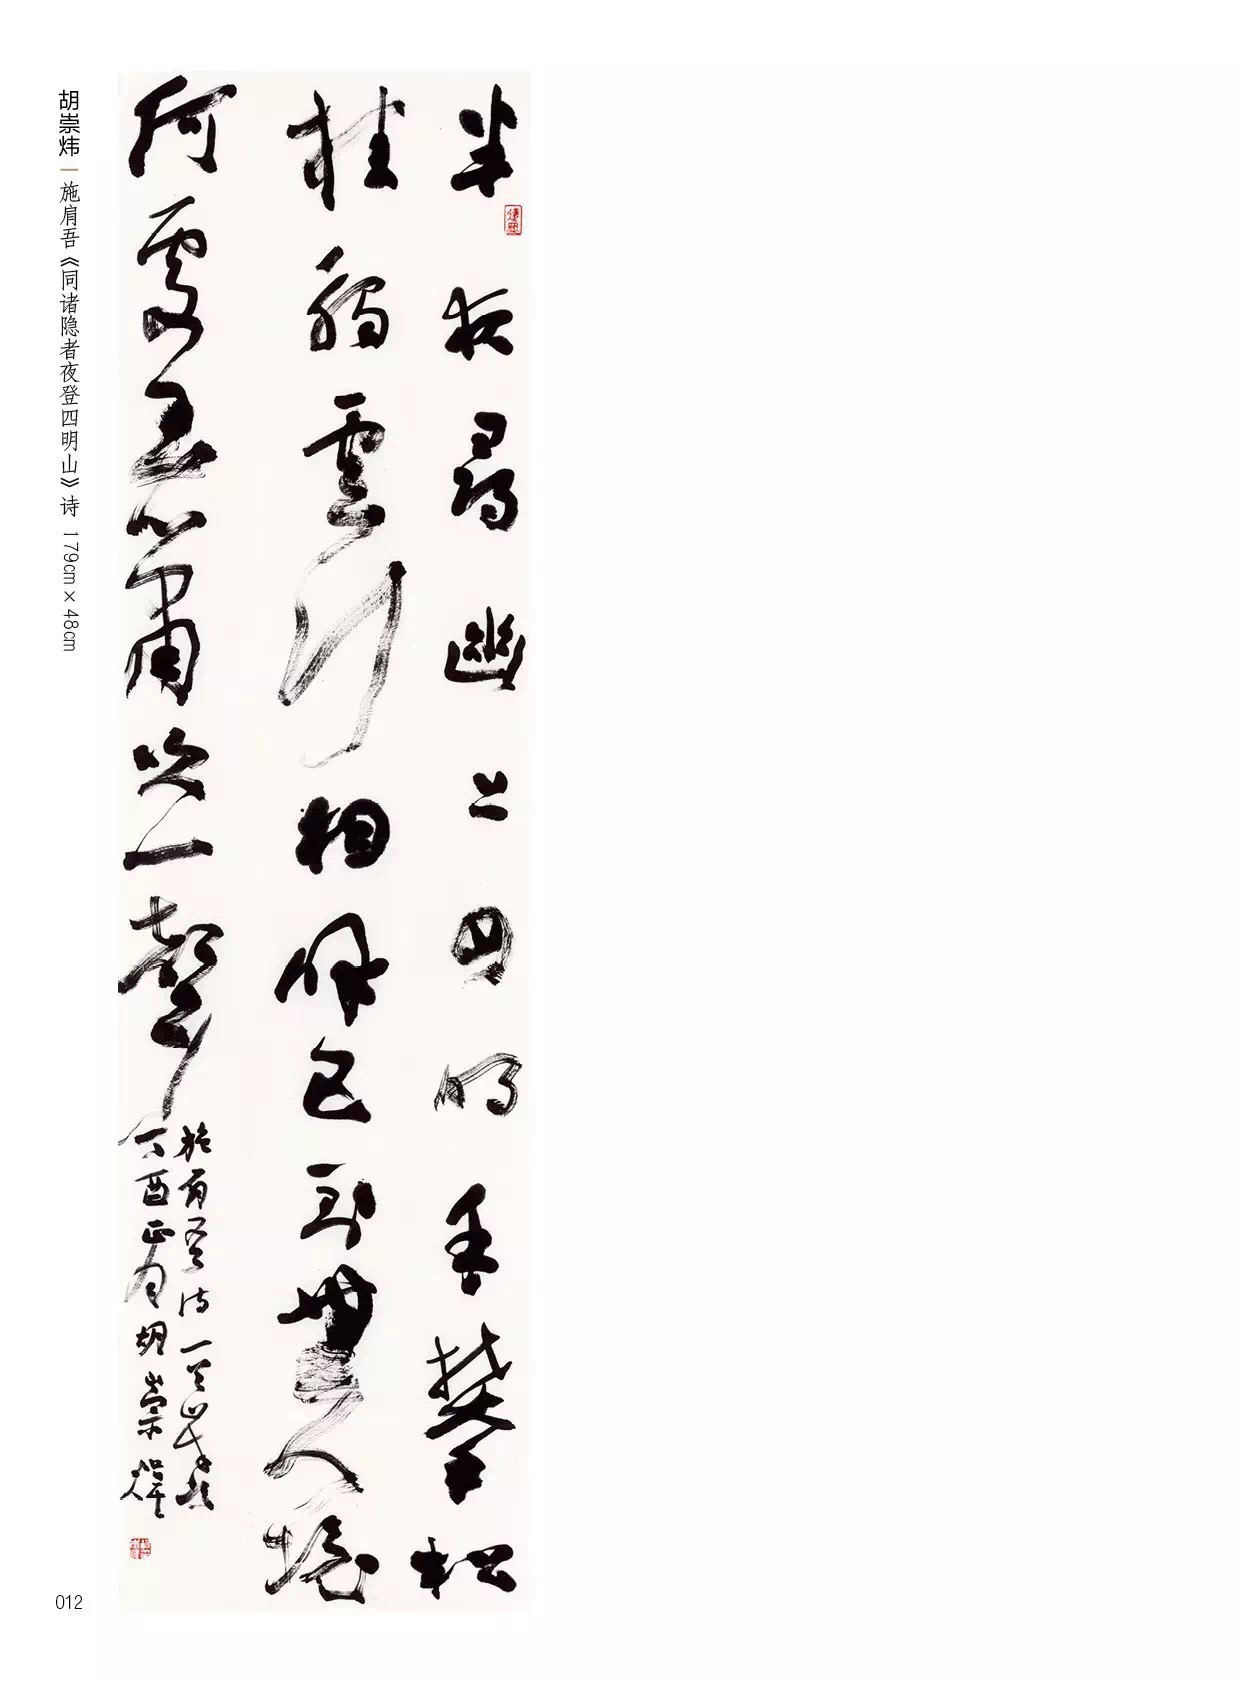 半夜尋幽上四明手攀松
桂觸雲行相呼已到無人境
何處玉簫吹一聲
施肩吾詩一
丁酉正月胡崇煒
胡崇炜 | 施肩吾《同诸隐者夜登四明山》诗 179cm×48cm
012